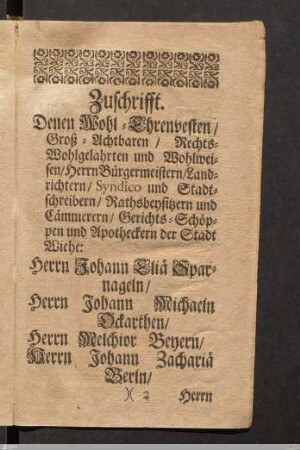 Zuschrifft.
Denen Wohl-Ehrenvesten/
Groß-Achtbaren/ Rechts-
Wohlgelahrten und Wohlwei-
sen/ Herrn Bürgermeistern/ Land-
richtern/ Syndico und Stadt-
schreibern/ Rathsbeysitzern und
Cämmerern/ Gerichts-Schöp-
pen und Apotheckern der Stadt
Wiehe:
Herrn Johann Eliä Spar-
nageln/
Herrn Johann Michaeln
Ockarthen/
Herrn Melchior Beyern/
Herrn Johann Zachariä
Berln/
)( 2 Herrn